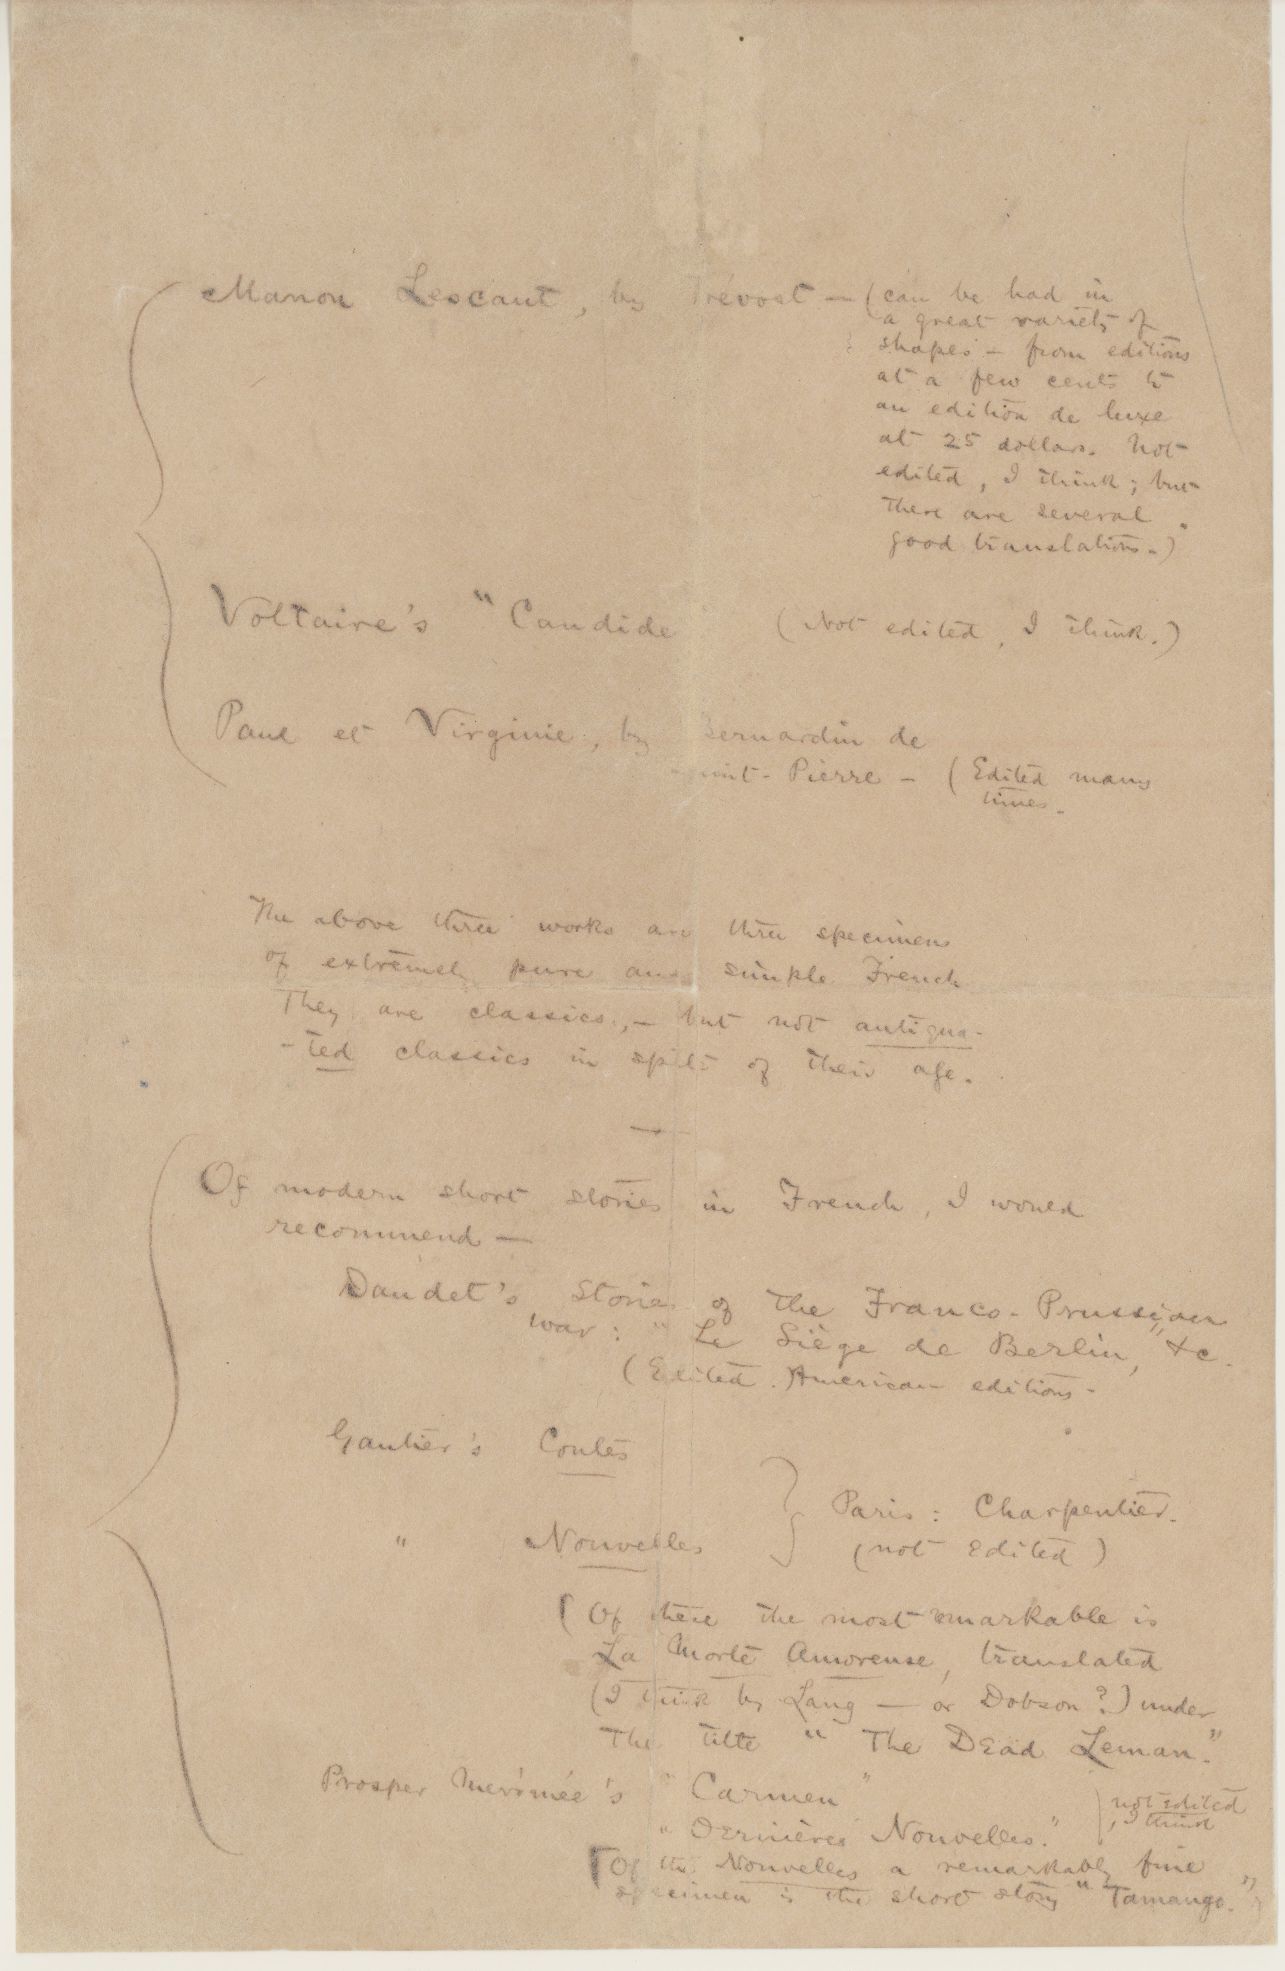 Manon Lescaut, by Prévost — (can be had in
a great variety of
shapes — from editions
at a few cents to
an edition de luxe
at 25 dollars. Not
edited, I think; but
there are several
good translations.)
Voltaire's "Candide (Not edited, I think.)
Paul et Virginie, by Bernardin de
Saint-Pierre — (Edited many
times.
The above three works are three specimens
of extremely pure and simple French
They are classics, — but not antiqua-
-ted classics in spite of their age.
Of modern short stories in French, I would
recommend —
Daudet's Stories of the Franco-Prussian
war: "Le Siège de Berlin," &c.
(Edited. American editions.
Gautier's Contes
" Nouvelles
Paris: Charpentier.
(not edited)
(Of these the most remarkable is
La Morte Amoreuse, translated
(I think by Lang — or Dobson?) under
the title "The Dead Leman."
Prosper Merimée's "Carmen"
"Dernières Nouvelles."
not edited
, I think
[Of the Nouvelles a remarkably fine
specimen is the short story "Tamango.")